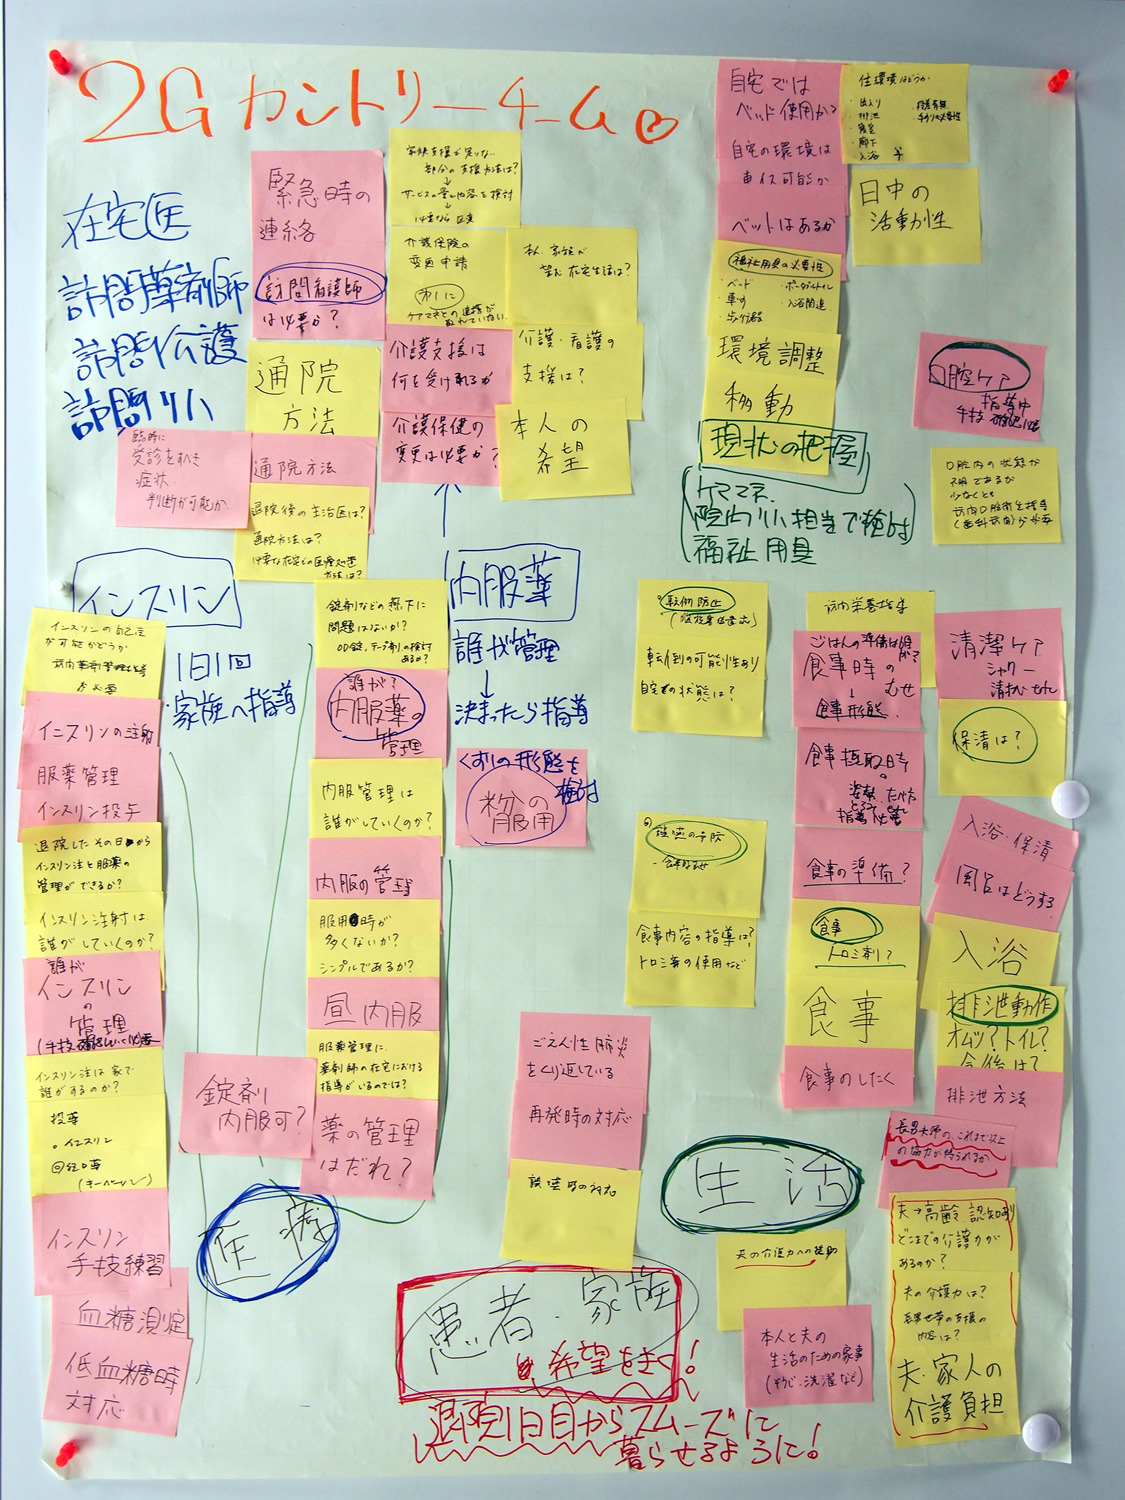 2Gカントリーチーム
在宅医
訪問薬剤師
訪問介護
訪問リハ
緊急時の
連絡
訪問看護師
は必要か?
通院
方法
臨時に
受診をすべき
症状
判断が可能か
通院方法
退院後の主治医は?
通院方法は?
必要な在宅での医療処置
方法は?
家族支援が足りない
部分の支援方法は?
↓
サービスの量と内容を検討
↓
介護保険の
変更申請
介護支援は
何を受けれるか
介護保健の
変更は必要か?
本人、家族が
望む在宅生活は?
介護・看護の
支援は?
本人の
希望
自宅では
ベッド使用か?
自宅の環境は
車イス可能か
ベットはあるか
住環境はどうか
・出入り
・排泄
・寝室
・廊下
・入浴 等
・手すりの必要性
日中の
活動性
福祉用具の必要性
・ベード
・車す
・歩行器
・ポータブルトイレ
・入浴関連
環境調整
移動
現状の把握
ケアマネ、
院内リハ担当で検討
福祉用具
口腔ケア
指導中
手技 確認
口腔内の状態が
不明であるが
少なくとも
訪問口腔衛生指導
(歯科訪問)が必要
インスリン
1日1回
家族へ指導
インスリンの自己注
が可能かどうか
訪問薬剤管理指導
が必要
インスリンの注射
服薬管理
インスリン投与
退院したその日から
インスリン注と服薬の
管理ができるか?
インスリン注射は
誰がしていくのか?
誰が
インスリン
の
管理
インスリン注は家で
誰がするのか?
投薬
・インスリン
◎経口薬
インスリン
手技練習
血糖測定
低血糖時
対応
内服薬
誰が管理
↓
決まったら指導
くすりの形態を
検討
粉分の
服用
錠剤などの嚥下に
問題はないか?
OD錠、テープ剤の検討
あるか?
誰が?
内服薬の
管理
内服管理は
誰がしていくのか?
内服の管理
服用時が
多くないか?
シンプルであるか?
昼内服
服薬管理に、
薬剤師の在宅における
指導がいるのでは?
薬の管理
はだれ?
錠剤
内服可?
医療
転倒防止
転倒の可能性あり
自宅の状態は?
誤嚥の予防
食事内容の指導は?
トロミ等の使用など
訪問栄養指導
ごはんの準備は誰が?
食事時の
むせ
↓
食事形態
食事摂取時
の
姿勢、たべ方
とろみ
指導必要
食事の準備?
食事
トロミ剤?
食事
食事のしたく
清潔ケア
シャワー
清拭
保清は?
入浴・保清
風呂はどうする
入浴
排泄動作
オムツ?トイレ?
今後は?
排泄方法
ごえん性肺炎
をくり返している
再発時の対応
誤嚥時の対応
生活
長男夫婦の、これまで以上
の協力が得られるか
夫→高齢 認知あり
どこまでの介護力が
あるのか?
夫の介護力は?
長男世帯の支援の
内容は?
夫・家人の
介護負担
夫の介護力への援助
本人と夫の
生活のための家事
(そうじ・洗濯など)
患者・家族
希望をきく!
退院1日目からスムーズに
暮らせるように!